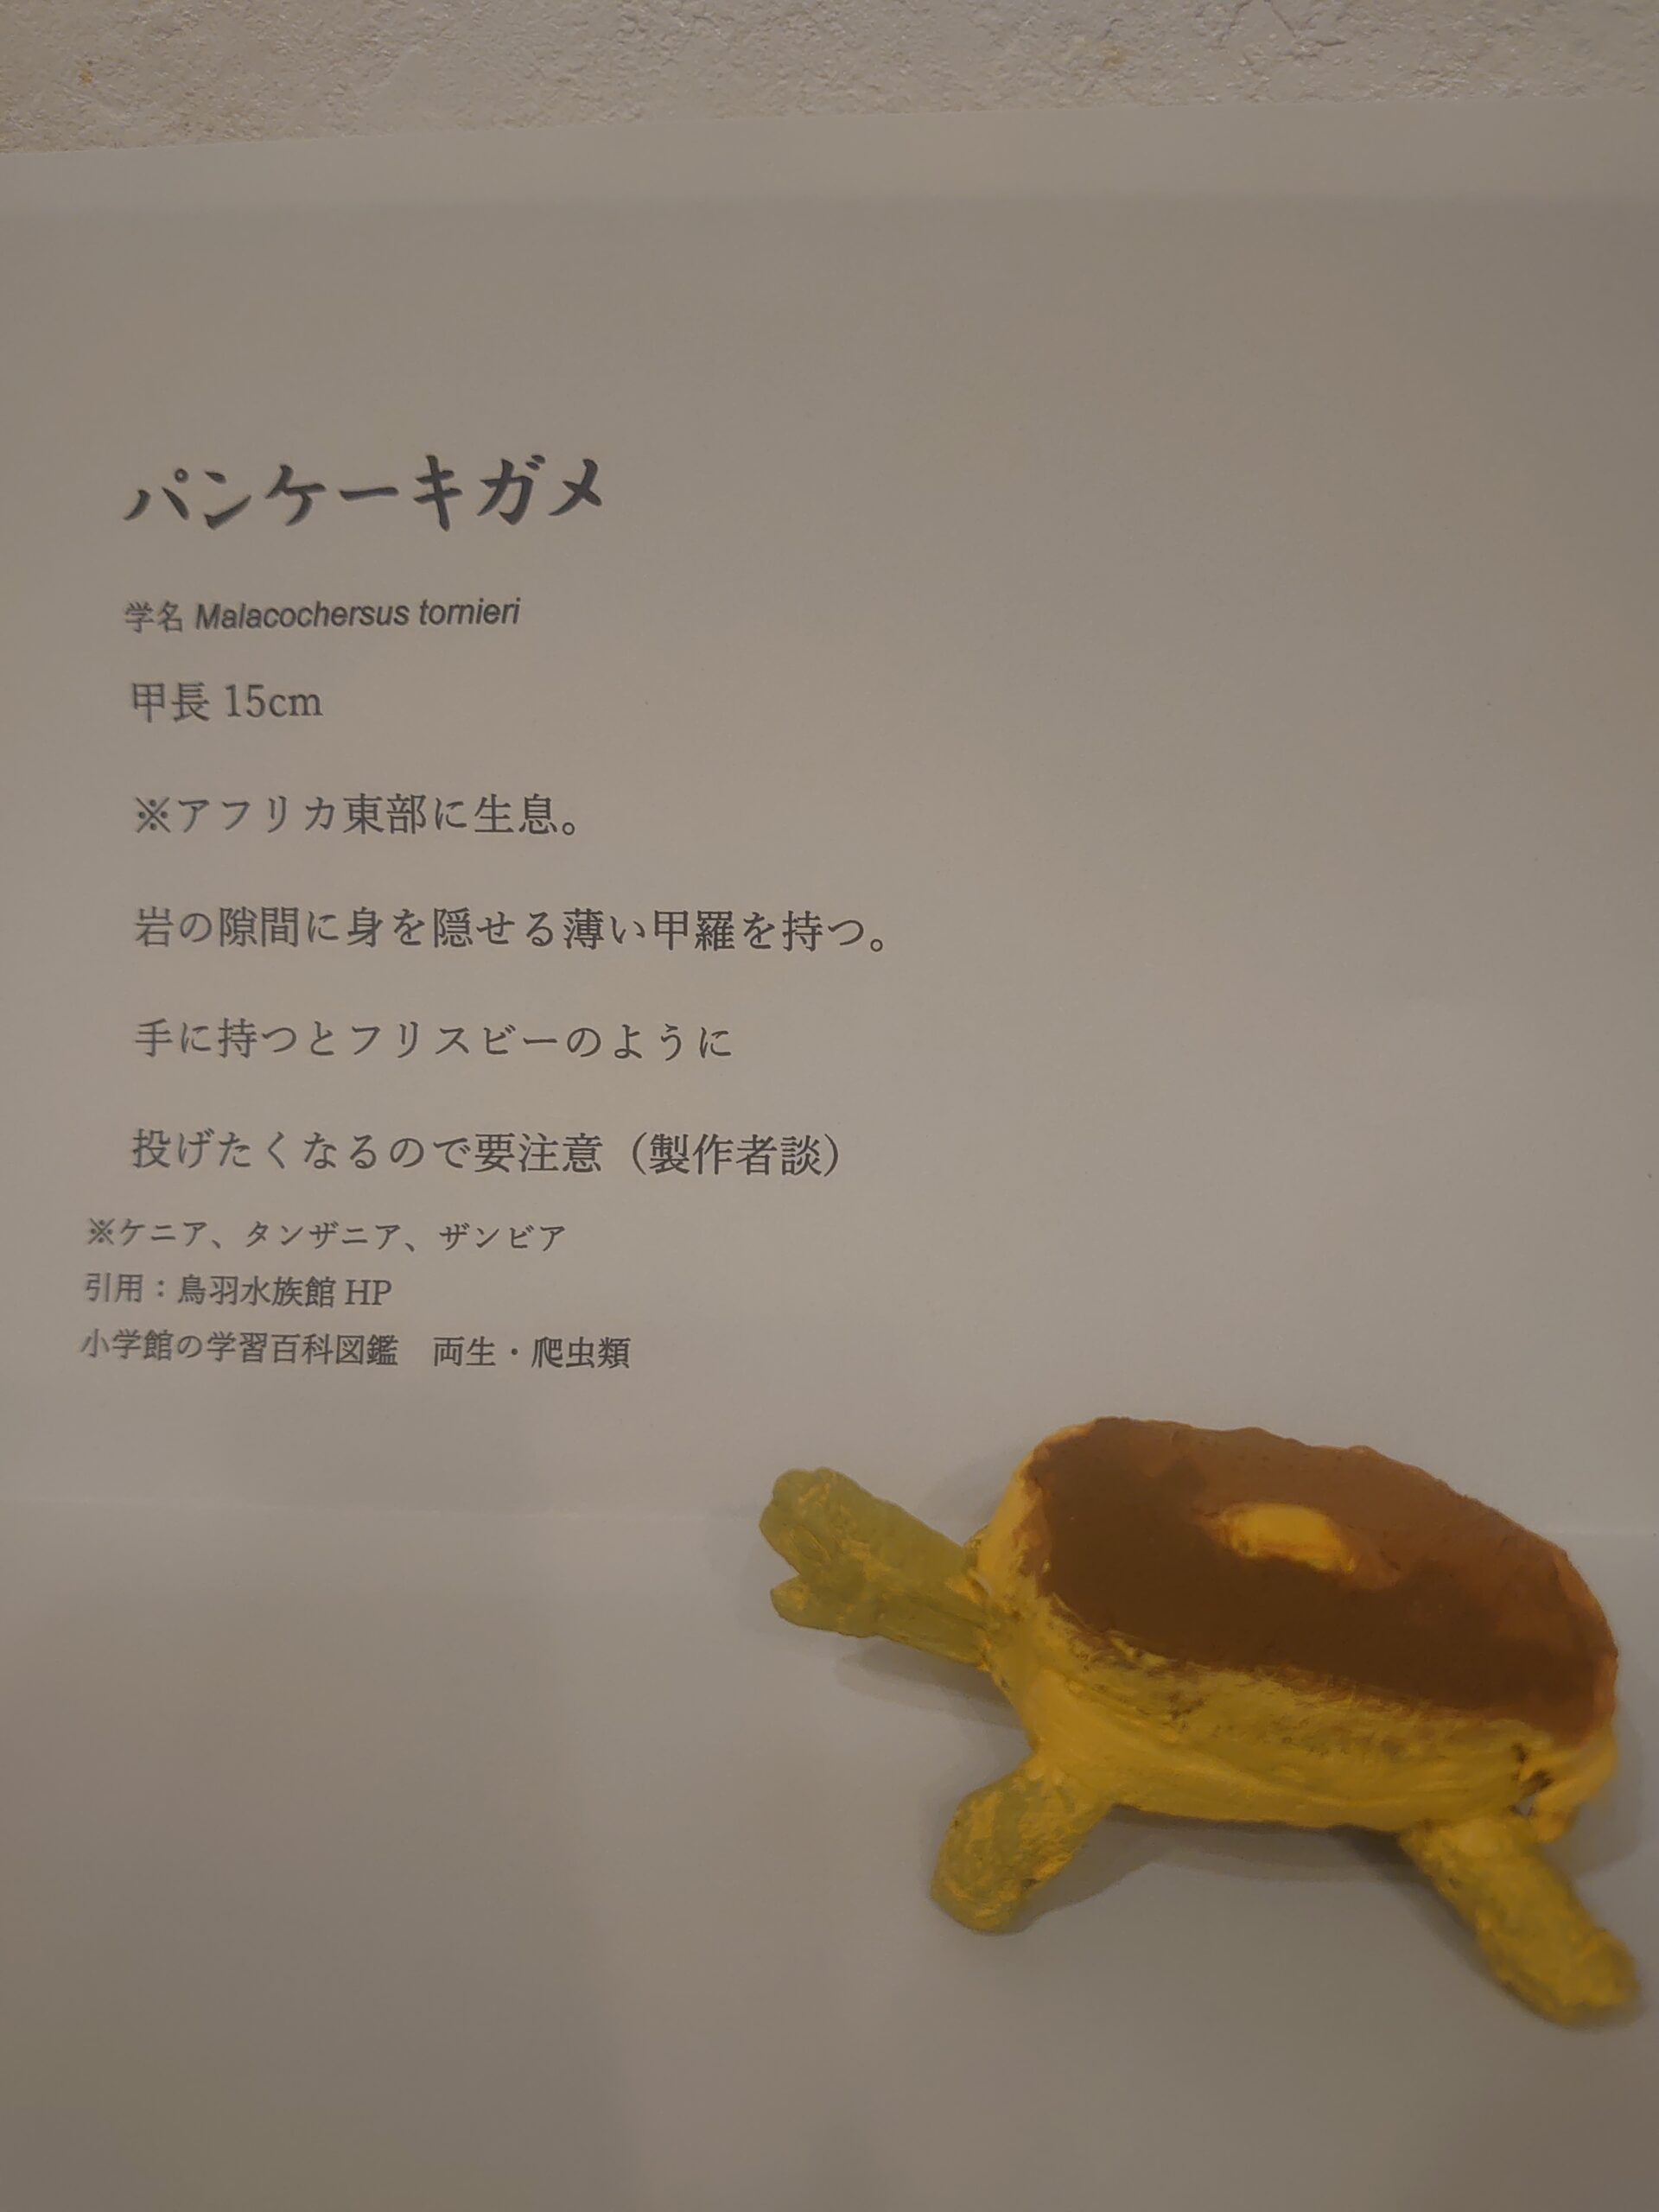 パンケーキガメ
学名 Malacochersus tornieri
甲長 15cm
※アフリカ東部に生息。
岩の隙間に身を隠せる薄い甲羅を持つ。
手に持つとフリスビーのように
投げたくなるので要注意（製作者談）
※ケニア、タンザニア、ザンビア
引用：鳥羽水族館 HP
小学館の学習百科図鑑　両生・爬虫類